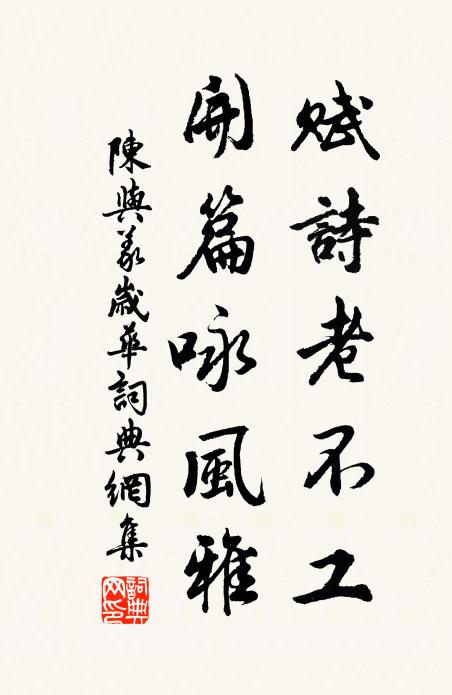 賦詩老不工
開篇咏風雅
陳與義歲華詞典網集
詞典网印